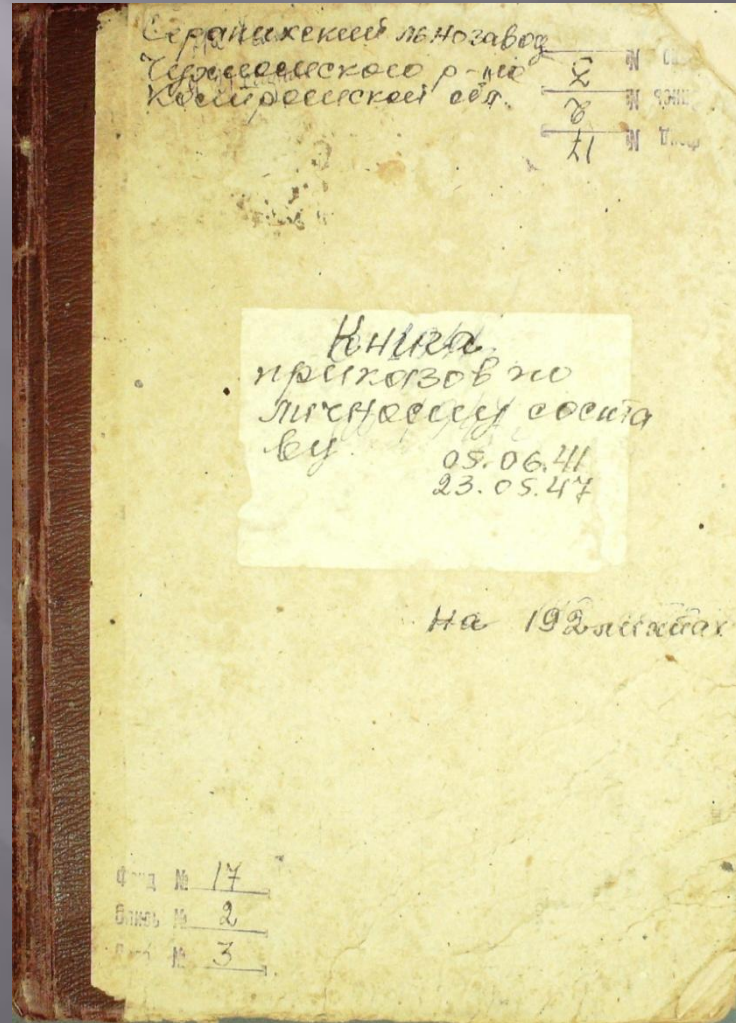 Серапихский льнозавод
Чухломского р-на
Костромской обл.
Дело № 3
Опись № 2
Фонд № 17
Книга
приказов по
личному соста
ву
05.06.41
23.05.47
На 192 листах
Фонд № 17
Опись № 2
Дело № 3